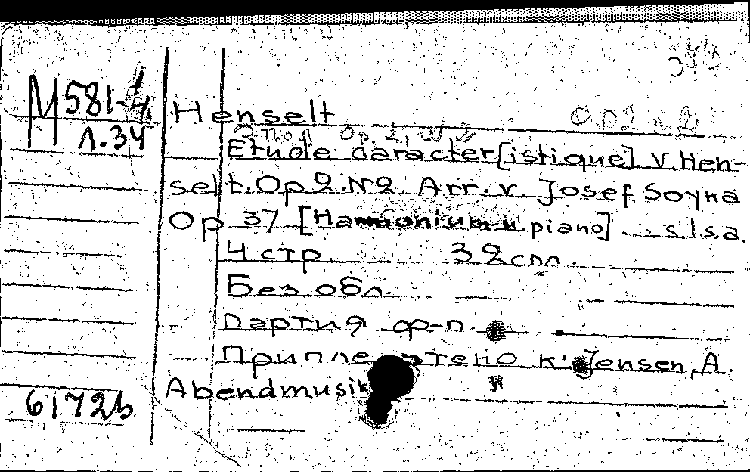 M 581-4
л.34
Henselt
Op. 2, № 2
Etude caracter[istique] v. Hen-
selt. Op 2. №2 Arr. v. Josef Soyna
Op 37 [Harmonium и piano]. s.l.s.a.
4 стр. 32 спл.
Без обл.
Партия ф-п.
Приплетено к: Jensen, A.
Abendmusik
61726